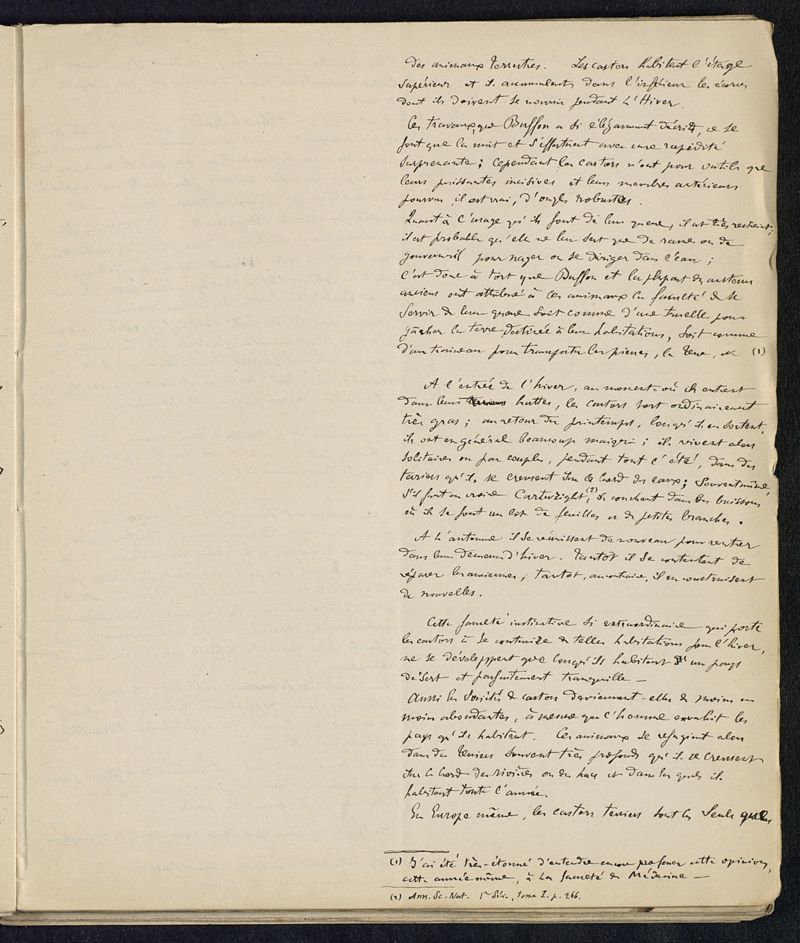 des animaux terrestres. Les castors habitent l'étage
supérieur et il accumulent dans l'inférieur les écorces
dont ils doivent se nourrir pendant l'Hiver.
Ces travaux, que Buffon a si élégamment décrits, ne se
font que la nuit et s'effectuent avec une rapidité
surprenante ; cependant les castors n'ont pour outils que
leurs puissantes incisives et leurs membres antérieurs
pourvus, il est vrai, d'ongles robustes.
Quant à l'usage qu'ils font de leur queue, il est très restreint ;
il est probable qu'elle ne leur sert que de rame ou de
gouvernail pour nager ou se diriger dans l'eau ;
c'est donc à tort que Buffon et la plupart des auteurs
anciens ont attribué à ces animaux la faculté de se
servir de leur queue soit comme d'une truelle pour
gâcher la terre destinée à leur habitations, soit comme
d'un traineau pour transporter les pierres, la terre, etc (1)
A l'entrée de l'hiver, au moment où ils entrent
dans leurs huttes, les castors sont ordinairement
très gras ; au retour du printemps, lorsqu'il en sortent,
ils ont en général beaucoup maigri ; il vivent alors
solitaires ou par couples, pendant tout l'été, dans des
terriers qu'ils se creusent sur le bord des eaux ; souvent même,
s'il faut en croire Cartwright (2) ils couchent dans les buissons
où il se font un lit de feuilles et de petites branches.
A l'automne il se réunissent de nouveau pour rentrer
dans leur demeure d'hiver. Tantôt il se contentent de
réparer les anciennes ; tantôt, au contraire, il en construisent
de nouvelles.
Cette faculté instinctive si extraordinaire qui porte
les castors à se construire de telles habitations pour l'hiver,
ne se développent que lorsqu'ils habitent un pays
désert et parfaitement tranquille —
Aussi les Sociétés de castors deviennent-elles de moins en
moins abondantes, à mesure que l'homme envahit les
pays qu'ils habitent. Ces animaux se refugient alors
dans des terriers souvent très profonds qu'il se creusent
sur le bord des rivières ou des lacs et dans les quels il
habitent toute l'année.
En Europe même, les castors terriers sont les seuls que les
(1) J'ai été très-étonné d'entendre encore professer cette opinion,
cette année même, à la faculté de Médecine —
(2) Ann. Sc. Nat. 1re Série, tome I. p. 266.